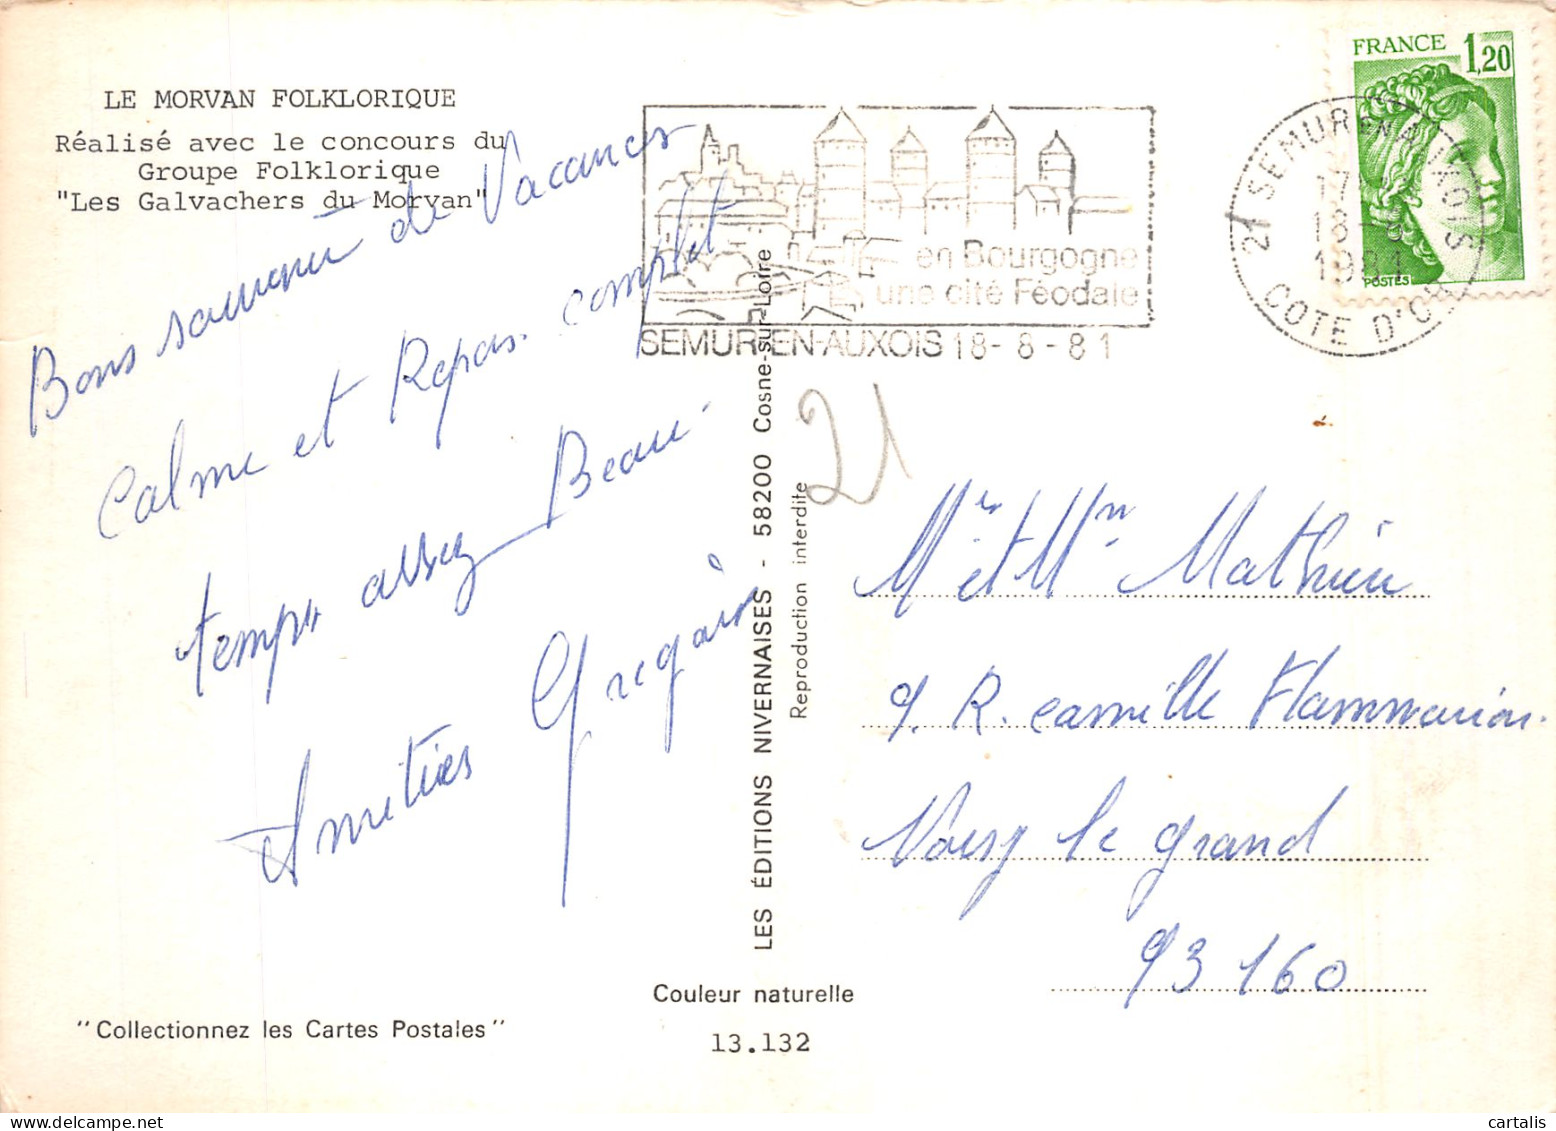 LE MORVAN FOLKLORIQUE
Réalisé avec le concours du
Groupe Folklorique
"Les Galvachers du Morvan"
Bons souvenir de Vacances
Calme et Repos complet
temps assez Beau
Amitiés Gregoir
"Collectionnez les Cartes Postales"
Couleur naturelle
13.132
LES ÉDITIONS NIVERNAISES - 58200 Cosne-sur-Loire
Reproduction interdite
en Bourgogne
une cité Féodale
SEMUR-EN-AUXOIS 18-8-81
21 SEMUR EN AUXOIS
18-8
1981
COTE D'OR
FRANCE 1,20
POSTES
21
Mr et Mm Mathieu
9. R. Camille Flammarion.
Noisy le grand
93160
cartalis